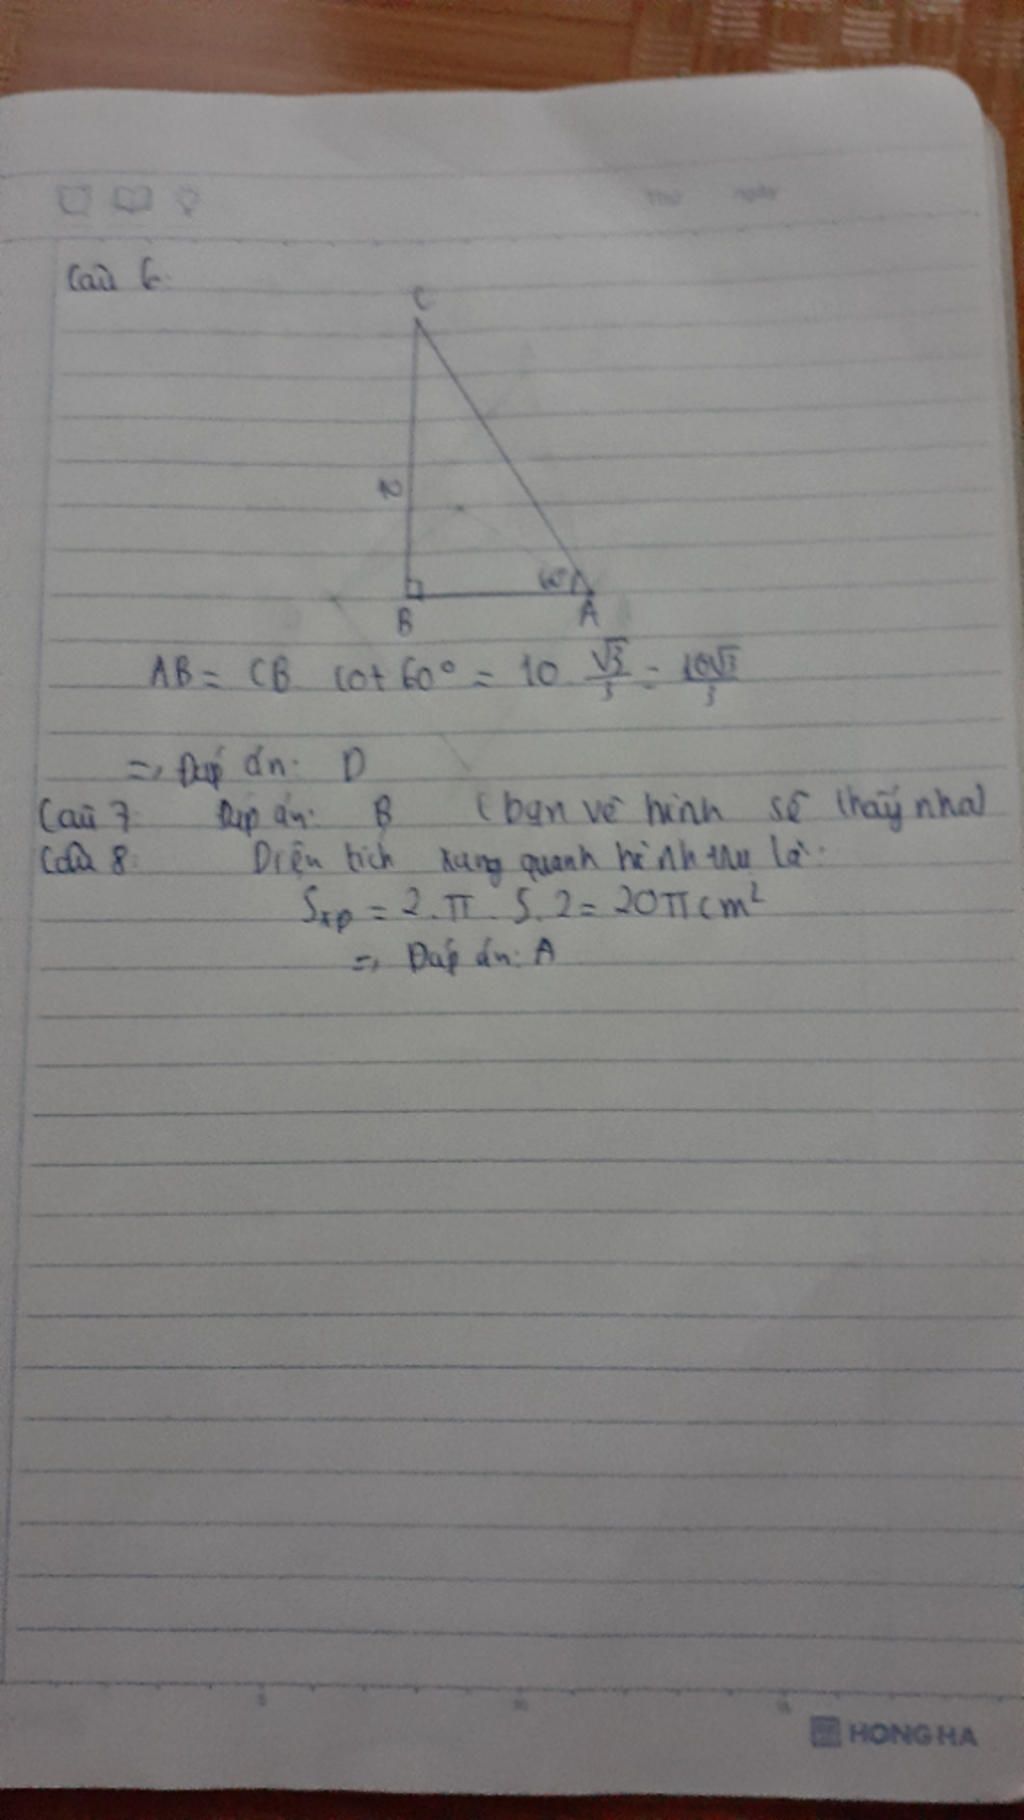 Thứ ngày
Câu 6:
C
10
60°
B
A
AB = CB cot 60° = 10 √3/3 = 10√3/3
=> Đáp án: D
Câu 7: Đáp án: B (bạn vẽ hình sẽ thấy nha)
Câu 8: Diện tích xung quanh hình trụ là:
Sxq = 2.π.5.2 = 20π cm²
=> Đáp án: A
HONG HA